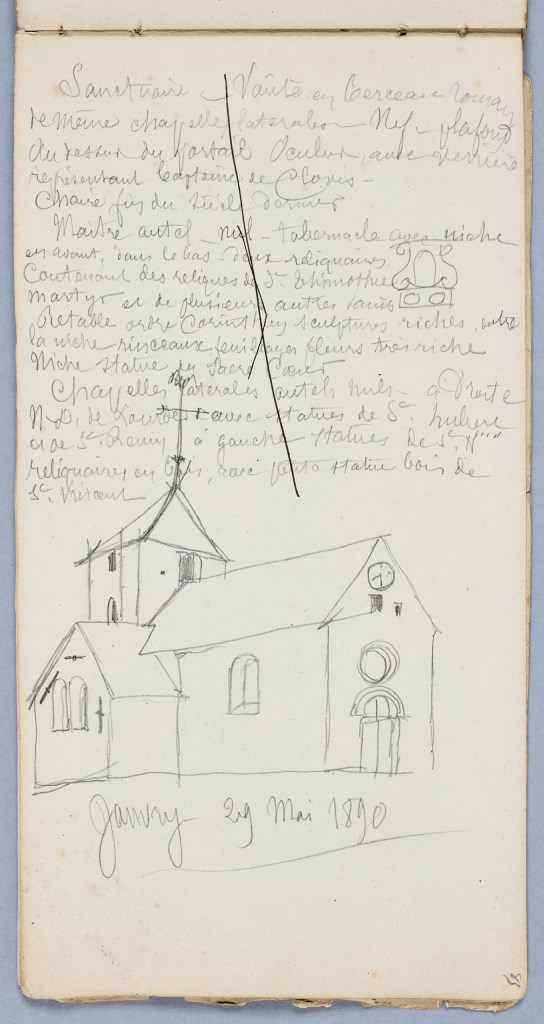 Sanctuaire - Voûte en berceau roman
de même chapelles laterales - Nef - plafond
Au dessus du portail Oculus avec verrière
représentant baptême de Clovis -
Chaire fin du siècle dernier
Maître autel - nul - tabernacle avec niche
en avant, dans le bas deux reliquaires
Contenant des reliques de St. Thimothée
martyr et de plusieurs autres saints
Retable ordre Corinthien sculptures riches, entre
la niche rinceaux, feuillages fleurs très riche
Niche statue du Sacré Coeur
Chapelles laterales autels nuls - a Droite
N.D. de Lourdes avec statues de St. hubert
et de St. Remy, à gauche statues de Ste. V""
reliquaires en bois, avec petite statue bois de
St. Vincent
Janvry 29 Mai 1890